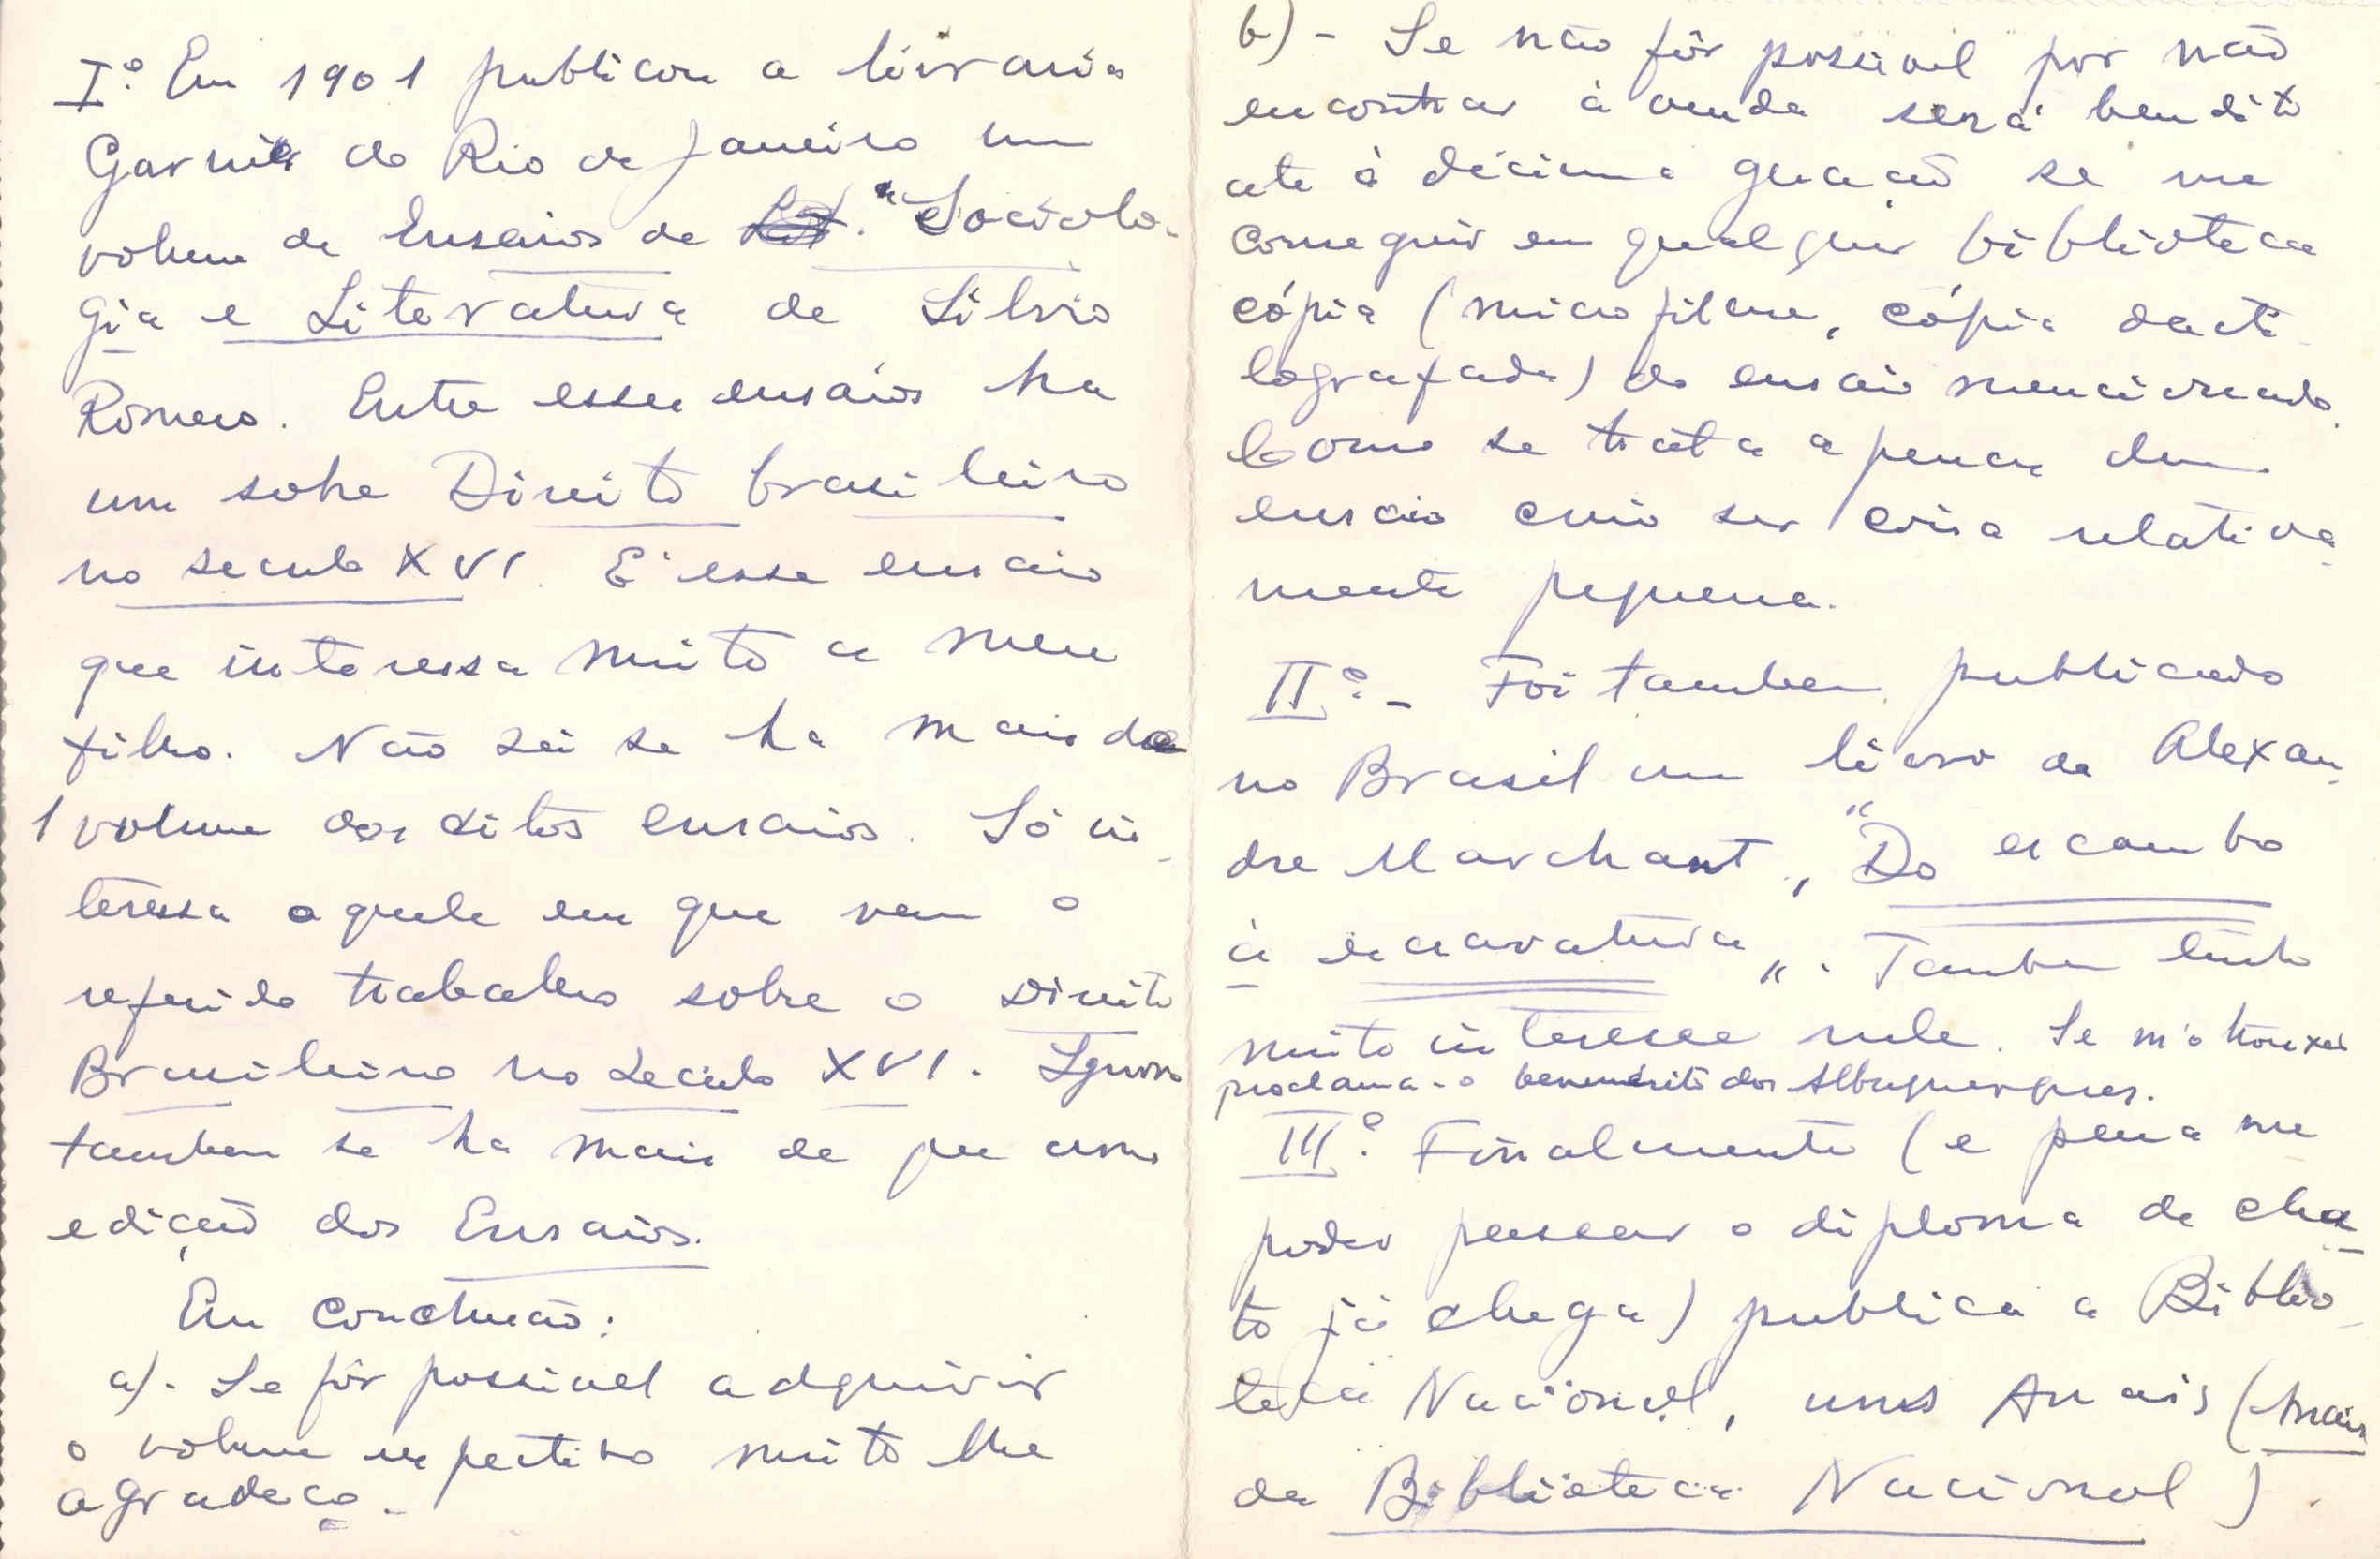 Iº. Em 1901 publicou a livraria
Garnier do Rio de Janeiro um
volume de Ensaios de Lit. "Sociolo-
gia e Literatura de Silvio
Romero. Entre esses ensaios ha
um sobre Direito brasileiro
no seculo XVI. E' esse ensaio
que interessa muito a meu
filho. Não sei se ha mais de
1 volume dos ditos ensaios. Só in-
teressa aquele em que vem o
referido trabalho sobre o Direito
Brasileiro no Seculo XVI. Ignoro
tambem se ha mais de que uma
edição dos Ensaios.
Em conclusão:
a) - Se fôr possivel adquirir
o volume respectivo muito lhe
agradeço.
b) - Se não fôr possivel por não
encontrar à venda será bendito
até à décima geração se me
conseguir em qualquer biblioteca
cópia (microfilme, cópia dacti-
lografada) do ensaio mencionado.
Como se trata apenas dum
ensaio creio ser coisa relativa-
mente pequena.
IIº. - Foi tambem publicado
no Brasil um livro de Alexan-
dre Marchant, "Do escambo
à escravatura". Tambem tenho
muito interesse nele. Se m'o trouxer
proclama-o benemérito dos Albuquerques.
IIIº. Finalmente (e pena me
poder passar o diploma de cha-
to já chega) publica a Biblio-
teca Nacional, uns Anais (Anais
da Biblioteca Nacional).